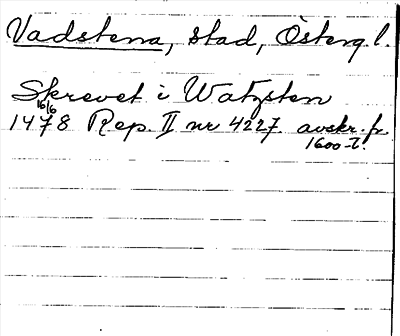 Vadstena, stad, Österg.l.
Skrevet i Watzsten
16/6
1478 Rep. II nr 4227. avskr. fr.
1600-t.